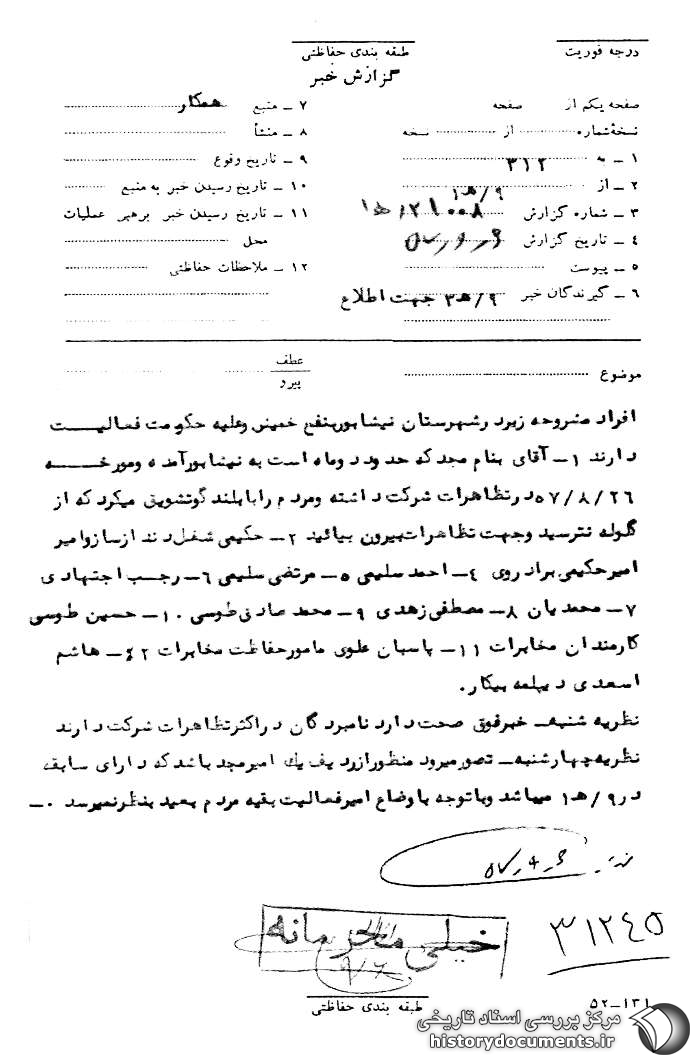 درجه فوریت
طبقه بندی حفاظتی
گزارش خبر
صفحه یکم از صفحه
نسخهٔ شماره از نسخه
۱ ـ به ۳۱۲
۲ ـ از ۹/ه‍۱
۳ ـ شماره گزارش ۲۱۰۰۸/ه‍۱
۴ ـ تاریخ گزارش
۵ ـ پیوست
۶ ـ گیرندگان خبر ۹/ه‍۳ جهت اطلاع
۷ ـ منبع همکار
۸ ـ منشأ
۹ ـ تاریخ وقوع
۱۰ ـ تاریخ رسیدن خبر به منبع
۱۱ ـ تاریخ رسیدن خبر برهبر عملیات
محل
۱۲ ـ ملاحظات حفاظتی
موضوع
عطف
پیرو
افراد مشروحه زیردرشهرستان نیشابوربنفع خمینی وعلیه حکومت فعالیت
دارند ۱ـ آقای بنام مجدکه حدود دوماه است به نیشابورآمده ومورخه
۵۷/۸/۲۶درتظاهرات شرکت داشته ومردم رابابلندگوتشویق میکردکه از
گلوله نترسید وجهت تظاهرات بیرون بیائید ۲ـ حکیمی شغل دندانسازوامیر
امیرحکیمی برادروی ۴ـ احمد سلیمی ۵ـ مرتضی سلیمی ۶ـ رجب اجتهادی
۷ـ محمدیان ۸ـ مصطفی زهدی ۹ـ محمد صادق طوسی ۱۰ـ حسین طوسی
کارمندان مخابرات ۱۱ـ پاسبان علوی مامورحفاظت مخابرات ۱۲ـ هاشم
اسعدی دیپلمه بیکار.
نظریه شنبه ـ خبرفوق صحت دارد نامبردگان دراکثرتظاهرات شرکت دارند
نظریه چهارشنبه ـ تصورمیرود منظورازردیف یک امیرمجد باشدکه دارای سابقه
در۹/ه‍۱ میباشد وباتوجه باوضاع اخیرفعالیت بقیه مردم بعید بنظرنمیرسد .ـ
۳۱۲۴۵
خیلی محرمانه
طبقه بندی حفاظتی
۵۲ـ۱۳۱
مرکز بررسی اسناد تاریخی
historydocuments.ir